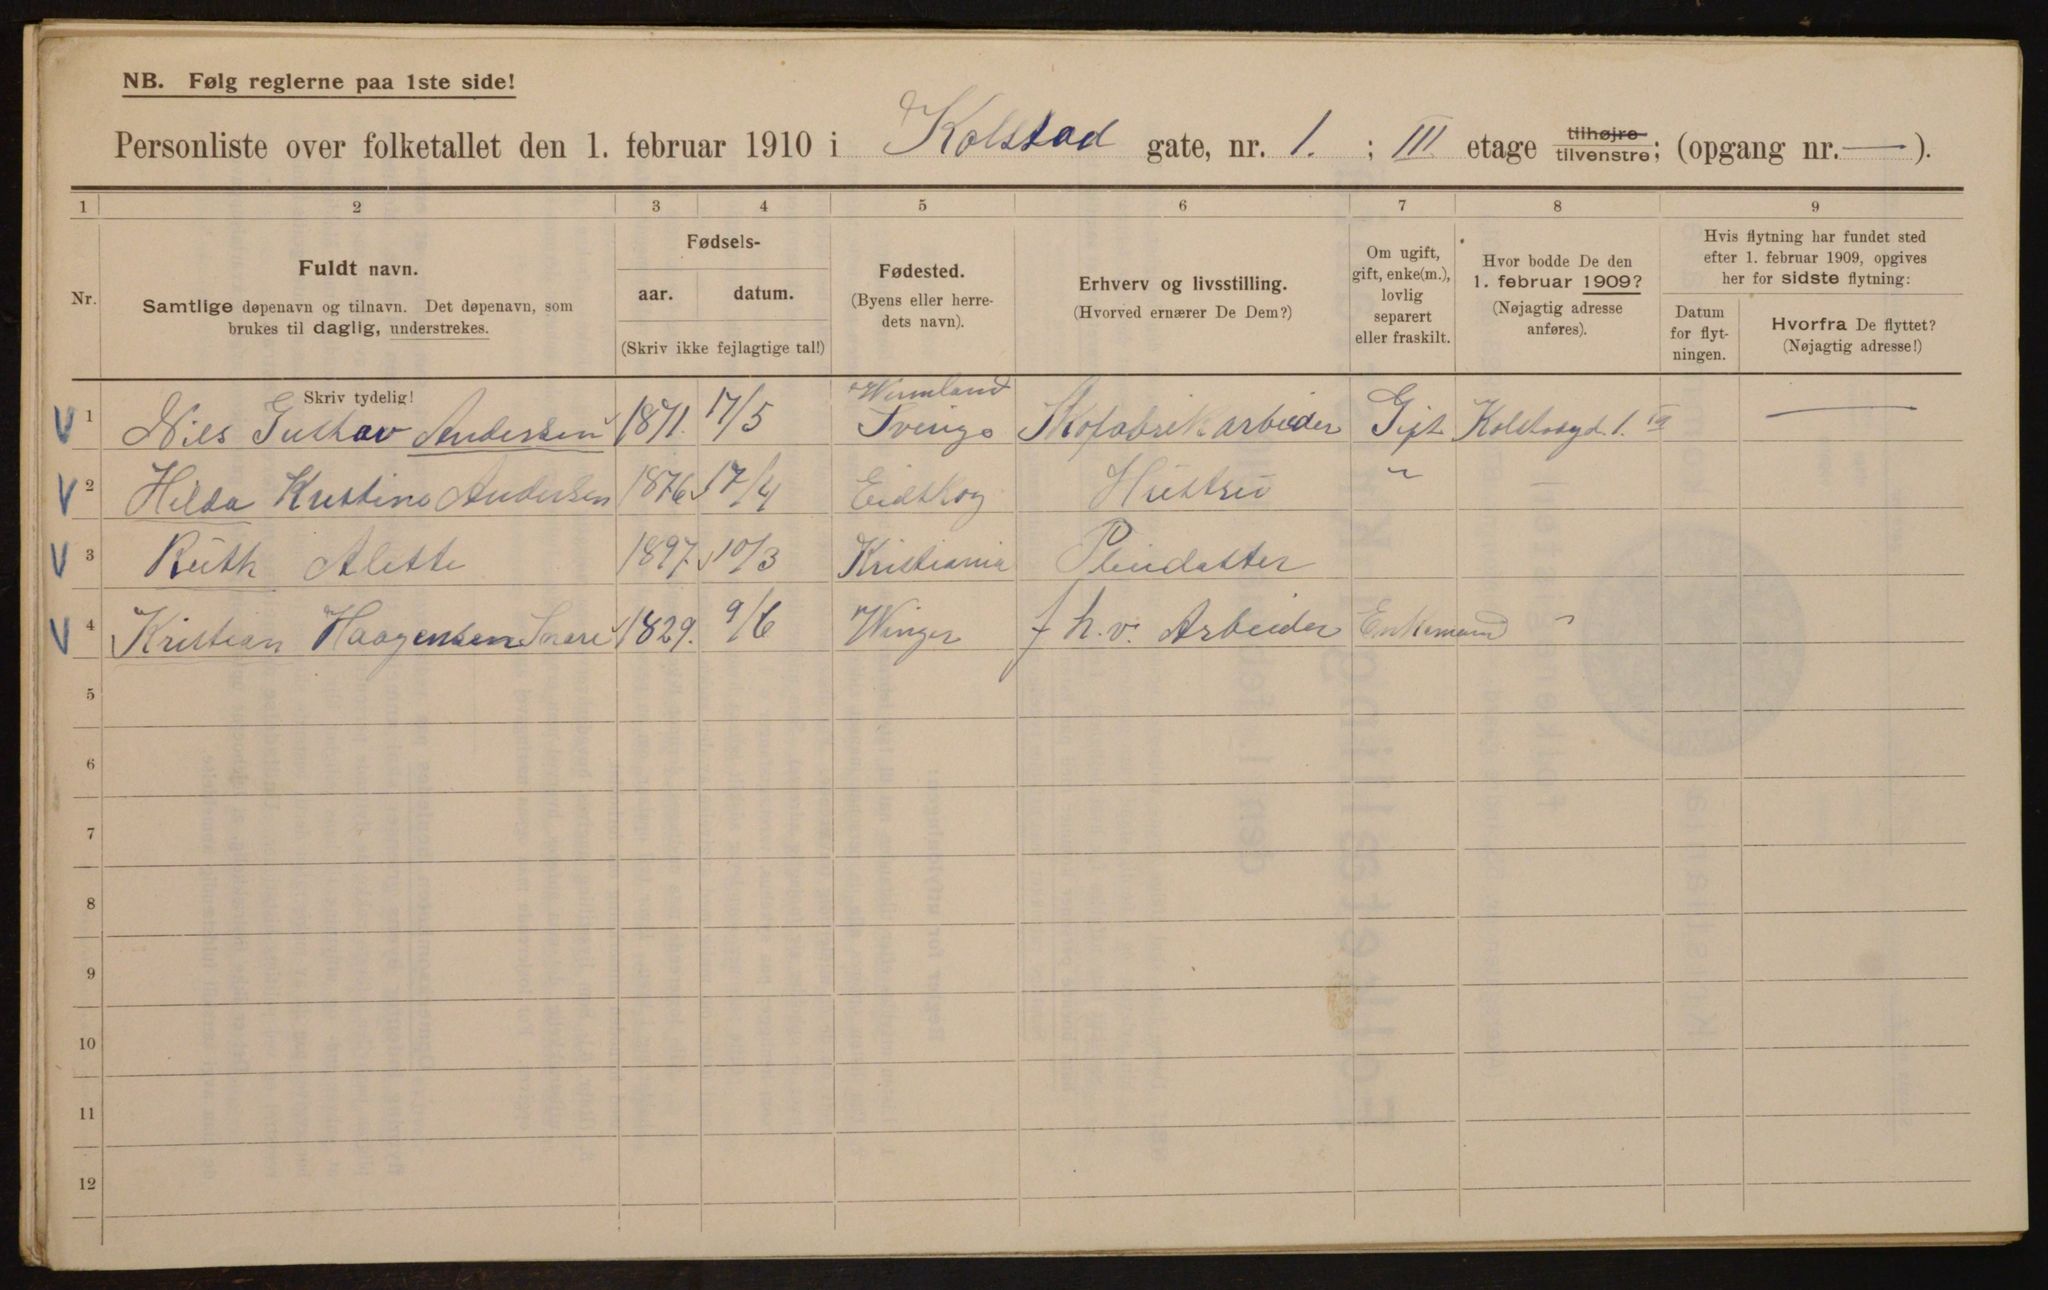 NB. Følg reglerne paa 1ste side!
Personliste over folketallet den 1. februar 1910 i Kolstad gate, nr. 1. ; III etage tilhøjre tilvenstre; (opgang nr. — ).
1 2 3 4 5 6 7 8 9
Nr.
Fuldt navn.
Samtlige døpenavn og tilnavn. Det døpenavn, som
brukes til daglig, understrekes.
Fødsels-
aar. datum.
(Skriv ikke fejlagtige tal!)
Fødested.
(Byens eller herre-
dets navn).
Erhverv og livsstilling.
(Hvorved ernærer De Dem?)
Om ugift,
gift, enke(m.),
lovlig
separert
eller fraskilt.
Hvor bodde De den
1. februar 1909?
(Nøjagtig adresse
anføres).
Hvis flytning har fundet sted
efter 1. februar 1909, opgives
her for sidste flytning:
Datum
for flyt-
ningen.
Hvorfra De flyttet?
(Nøjagtig adresse!)
Skriv tydelig!
V 1 Nils Gustav Andersen 1871. 17/5 Wermland Skofabrikarbeider Gift 1. III —
V 2 Hilda Kristine Andersen 1876 17/4 Eidskog Hustru "
V 3 Ruth Alette 1897 10/3 Kristiania Pleiedatter
V 4 Kristian Haagensen 1829. 9/6 Winger f h.v. Arbeider Enkemand "
5
6
7
8
9
10
11
12